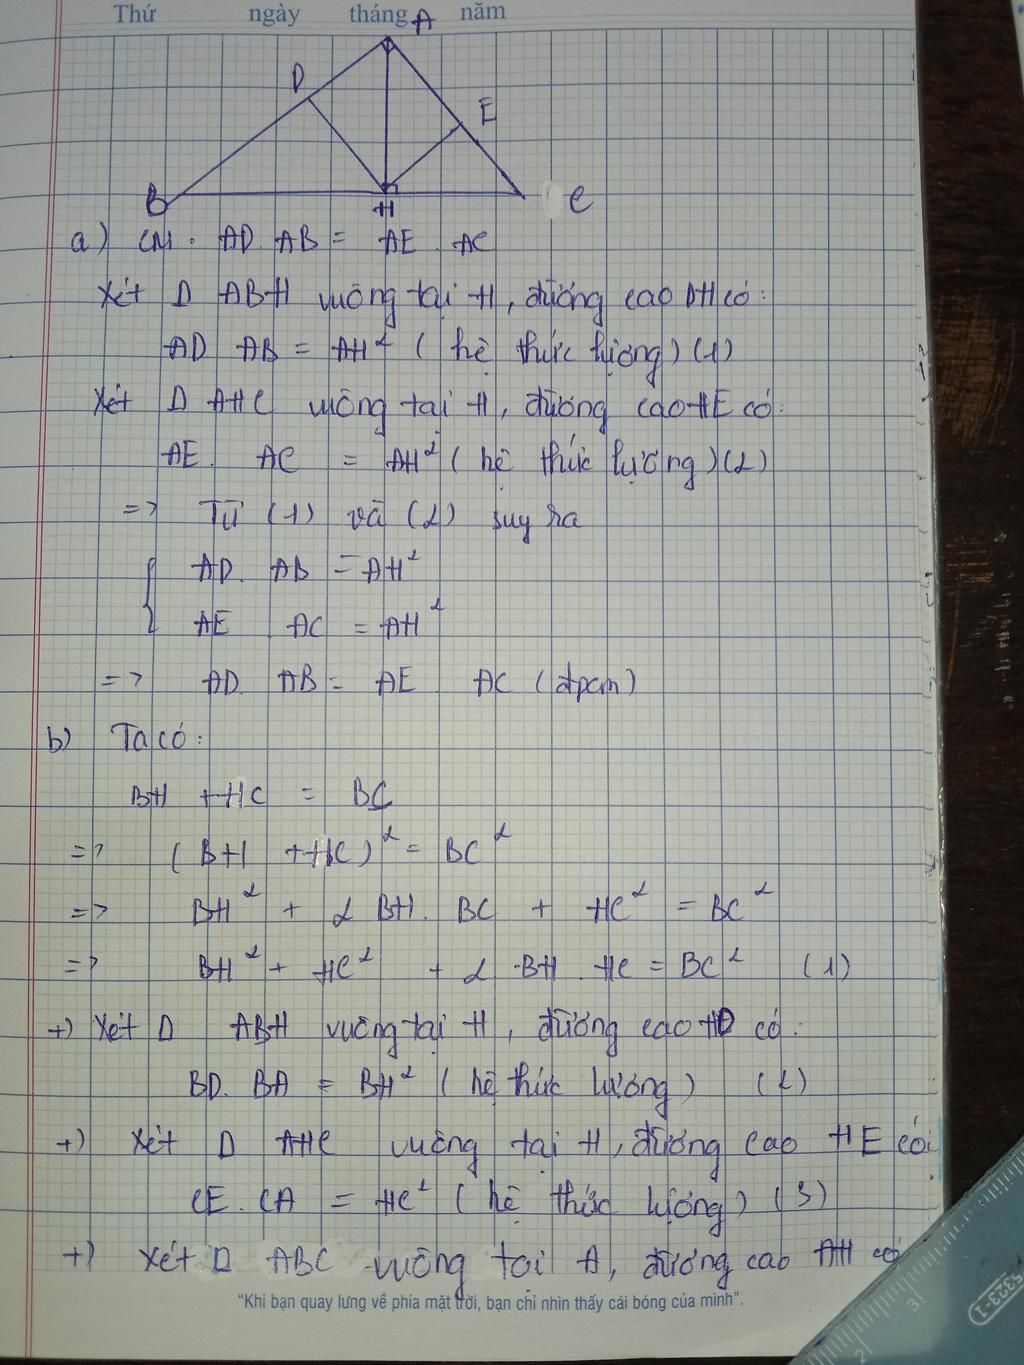 Thứ ngày tháng năm
A
D
E
B
H
C
a) CM: AD. AB = AE . AC
Xét D ABH vuông tại H, đường cao DH có:
AD AB = AH² ( hệ thức lượng) (1)
Xét D AHC vuông tại H, đường cao HE có:
AE. AC = AH² ( hệ thức lượng) (2)
=> Từ (1) và (2) suy ra
AD. AB = AH²
AE AC = AH²
=> AD. AB = AE AC (đpcm)
b) Ta có:
BH + HC = BC
=> ( BH + HC)² = BC²
=> BH² + 2 BH. BC + HC² = BC²
=> BH² + HC² + 2 .BH . HC = BC² (1)
+) Xét D ABH vuông tại H, đường cao HD có:
BD. BA = BH² ( hệ thức lượng) (2)
+) Xét D AHC vuông tại H, đường cao HE có:
CE. CA = HC² ( hệ thức lượng) (3)
+) Xét D ABC vuông tại A, đường cao AH có
"Khi bạn quay lưng về phía mặt trời, bạn chỉ nhìn thấy cái bóng của mình".
5323-1
3
2